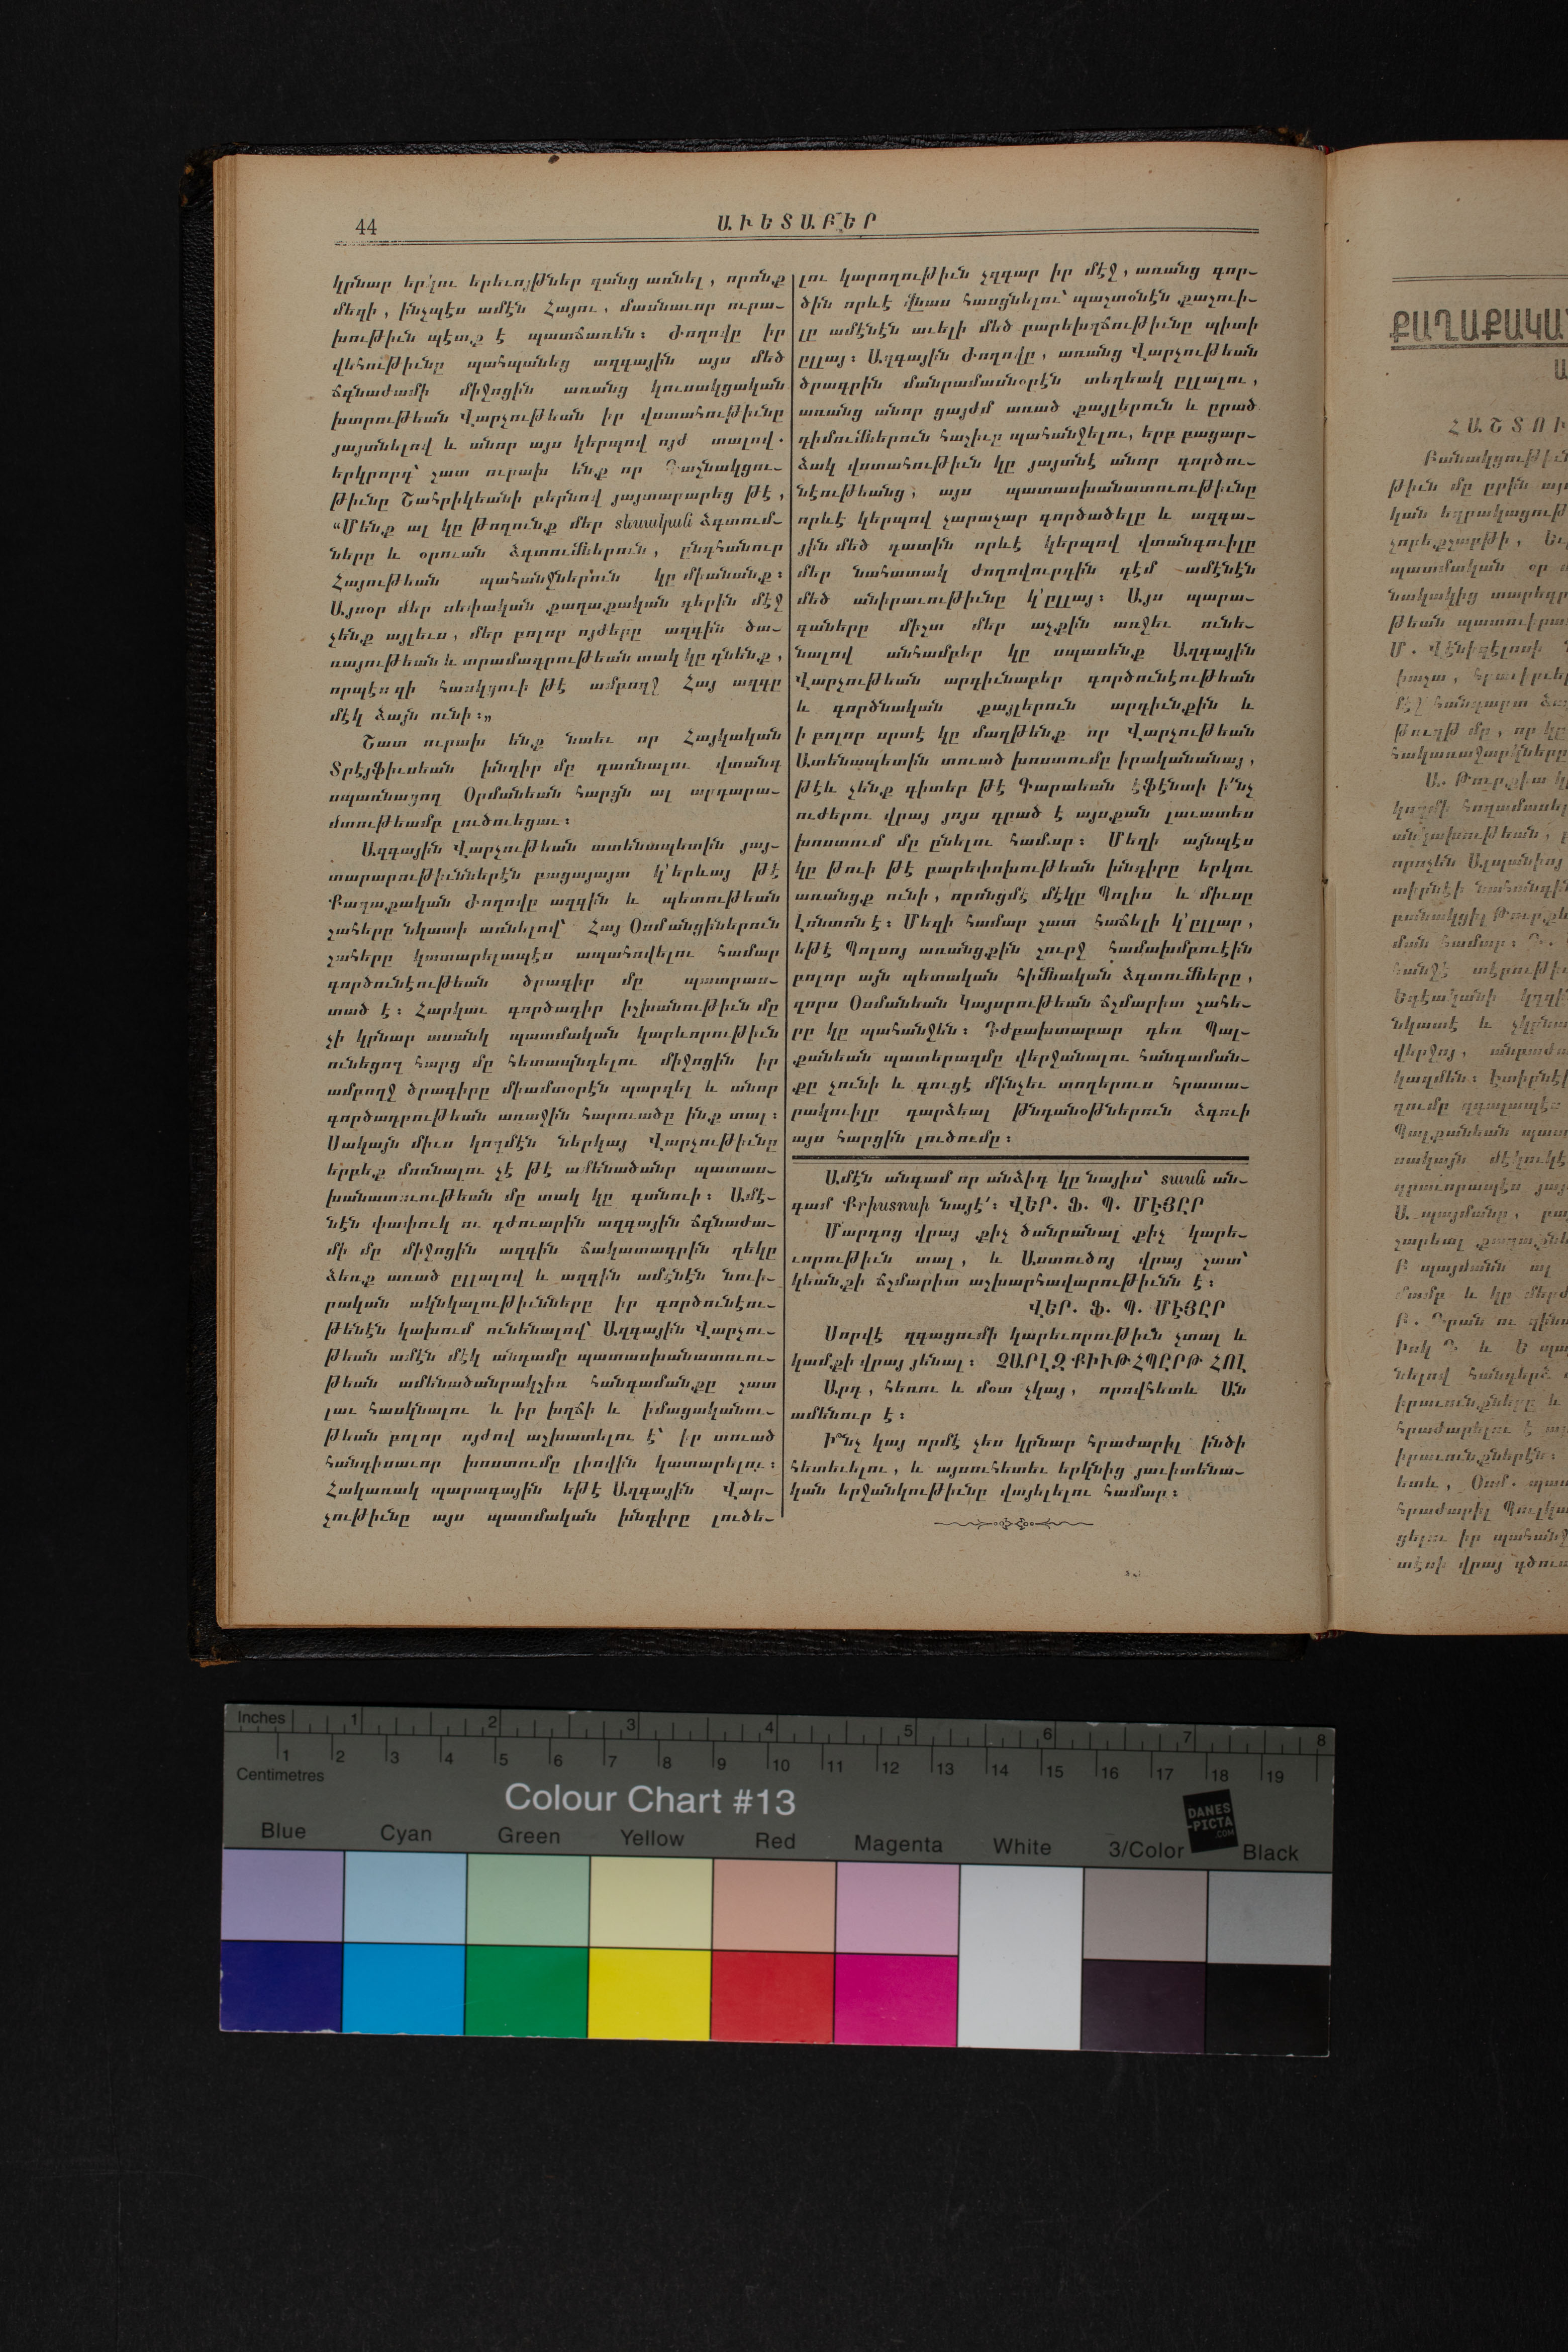 44
ԱՒԵՏԱԲԵՐ
կրնար երկու երեւոյթներ զանց առնել, որոնք
մեզի, ինչպէս ամէն Հայու, մասնաւոր ուրա-
խութիւն պէտք է պատճառեն։ Ժողովը իր
վեհութիւնը պահպանեց ազգային այս մեծ
ճգնաժամի միջոցին առանց կուսակցական
խտրութեան Վարչութեան իր վստահութիւնը
յայտնելով և անոր այս կերպով ոյժ տալով.
երկրորդ՝ շատ ուրախ ենք որ Դաշնակցու-
թիւնը Շահրիկեանի բերնով յայտարարեց թէ,
“Մենք ալ կը թողունք մեր տեսական ձգտում-
ները և օրուան ձգտումներուն, ընդհանուր
Հայութեան պահանջներուն կը միանանք։
Այսօր մեր սեփական քաղաքական դերին մէջ
չենք այլեւս, մեր բոլոր ոյժերը ազգին ծա-
ռայութեան և տրամադրութեան տակ կը դնենք,
որպէսզի հասկցուի թէ ամբողջ Հայ ազգը
մէկ ձայն ունի։„
Շատ ուրախ ենք նաեւ որ Հայկական
Տրէյֆիւսեան խնդիր մը դառնալու վտանգ
սպառնացող Օրմանեան հարցն ալ արդարա-
մտութեամբ լուծուեցաւ։
Ազգային Վարչութեան ատենապետին յայ-
տարարութիւններէն բացայայտ կ՚երևայ թէ
Քաղաքական Ժողովը ազգին և պետութեան
շահերը նկատի առնելով՝ Հայ Օսմանցիներուն
շահերը կատարելապէս ապահովելու համար
գործունէութեան ծրագիր մը պատրաս-
տած է։ Հարկաւ գործադիր իշխանութիւն մը
չի կրնար առանկ պատմական կարևորութիւն
ունեցող հարց մը հետապնդելու միջոցին իր
ամբողջ ծրագիրը միամտօրէն պարզել և անոր
գործադրութեան առաջին հարուածը ինք տալ։
Սակայն միւս կողմէն ներկայ Վարչութիւնը
երբեք մոռնալու չէ թէ ամենածանր պատաս-
խանատւութեան մը տակ կը գտնուի։ Ամէ-
նէն փափուկ ու դժուարին ազգային ճգնաժա-
մի մը միջոցին ազգին ճակատագրին ղեկը
ձեռք առած ըլլալով և ազգին ամէնէն նուի-
րական ակնկալութիւնները իր գործունէու-
թենէն կախում ունենալով՝ Ազգային Վարչու-
թեան ամէն մէկ անդամը պատասխանատուու-
թեան ամենածանրակշիռ հանգամանքը շատ
լաւ հասկնալու և իր խղճի և իմացականու-
թեան բոլոր ոյժով աշխատելու է՝ իր տուած
հանդիսաւոր խոստումը լիովին կատարելու։
Հակառակ պարագային եթէ Ազգային Վար-
չութիւնը այս պատմական խնդիրը լուծե-
լու կարողութիւն չզգար իր մէջ, առանց գոր-
ծին որևէ վնաս հասցնելու՝ պաշտօնէն քաշուի-
լը ամէնէն աւելի մեծ բարեխղճութիւնը պիտի
ըլլայ։ Ազգային Ժողովը, առանց Վարչութեան
ծրագրին մանրամասնօրէն տեղեակ ըլլալու,
առանց անոր ցայժմ առած քայլերուն և ըրած
դիմումներուն հաշիւը պահանջելու, երբ բացար-
ձակ վստահութիւն կը յայտնէ անոր գործու-
նէութեանց, այս պատասխանատուութիւնը
որևէ կերպով չարաչար գործածելը և ազգա-
յին մեծ դատին որևէ կերպով վտանգուիլը
մեր նահատակ ժողովուրդին դէմ ամէնէն
մեծ անիրաւութիւնը կ՚ըլլայ։ Այս պարա-
գաները միշտ մեր աչքին առջեւ ունե-
նալով անհամբեր կը սպասենք Ազգային
Վարչութեան արդիւնաբեր գործունէութեան
և գործնական քայլերուն արդիւնքին և
ի բոլոր սրտէ կը մաղթենք որ Վարչութեան
Ատենապետին տուած խոստումը իրականանայ,
թէև չենք գիտեր թէ Գարաեան էֆէնտի ի՛նչ
ուժերու վրայ յոյս դրած է այսքան լաւատես
խոստում մը ընելու համար։ Մեզի այնպէս
կը թուի թէ բարեփոխութեան խնդիրը երկու
առանցք ունի, որոնցմէ մէկը Պոլիս և միւսը
Լոնտոն է։ Մեզի համար շատ հաճելի կ՚ըլլար,
եթէ Պոլսոյ առանցքին շուրջ համախմբուէին
բոլոր այն պետական հիմնական ձգտումները,
զորս Օսմանեան Կայսրութեան ճշմարիտ շահե-
րը կը պահանջեն։ Դժբախտաբար դեռ Պալ-
քանեան պատերազմը վերջանալու հանգաման-
քը չունի և գուցէ մինչեւ տողերուս հրատա-
րակուիլը դարձեալ թնդանօթներուն ձգուի
այս հարցին լուծումը։
Ամէն անգամ որ անձիդ կը նայիս՝ տասն ան-
գամ Քրիստոսի նայէ՛։ ՎԵՐ. Ֆ. Պ. ՄԷՅԸՐ
Մարդոց վրայ քիչ ծանրանալ քիչ կարե-
ւորութիւն տալ, և Աստուծոյ վրայ շատ՝
կեանքի ճշմարիտ աշխարհավարութիւնն է։
ՎԵՐ. Ֆ. Պ. ՄԷՅԸՐ
Սորվէ զգացումի կարեւորութիւն չտալ և
կամքի վրայ յենալ։ ՉԱՐԼԶ ՔԻՒԹՀՊԸՐԹ ՀՈԼ
Արդ, հեռու և մօտ չկայ, որովհետև Ան
ամենուր է։
Ի՞նչ կայ որմէ չես կրնար հրաժարիլ ինծի
հետեւելու, և այսուհետեւ երկնից յաւիտենա-
կան երջանկութիւնը վայելելու համար։
ՔԱՂԱՔԱԿԱ
ՀԱՇՏՈՒ
Inches 1 2 3 4 5 6 7 8
1 2 3 4 5 6 7 8 9 10 11 12 13 14 15 16 17 18 19
Centimetres
Colour Chart #13
DANES
-PICTA
.COM
Blue Cyan Green Yellow Red Magenta White 3/Color Black